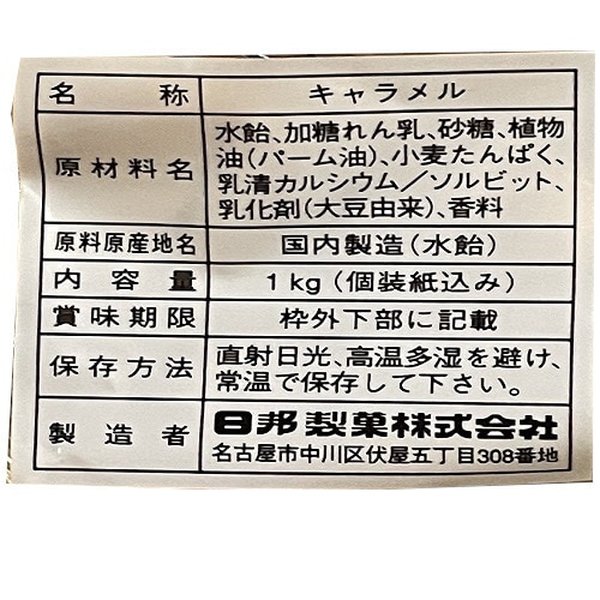 名称 キャラメル
原材料名 水飴、加糖れん乳、砂糖、植物
油(パーム油)、小麦たんぱく、
乳清カルシウム／ソルビット、
乳化剤(大豆由来)、香料
原料原産地名 国内製造(水飴)
内容量 1kg(個装紙込み)
賞味期限 枠外下部に記載
保存方法 直射日光、高温多湿を避け、
常温で保存して下さい。
製造者 日邦製菓株式会社
名古屋市中川区伏屋五丁目308番地